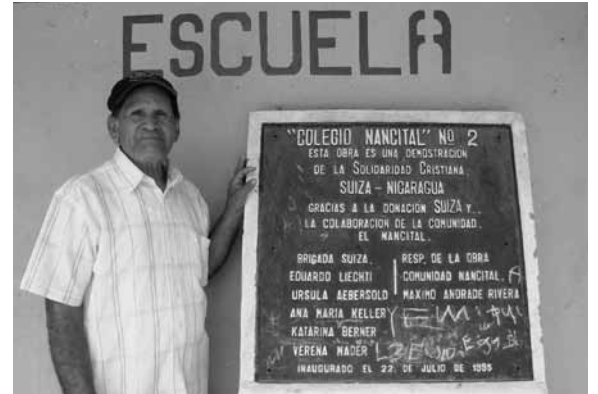 ESCUELA
"COLEGIO NANCITAL" Nº 2
ESTA OBRA ES UNA DEMOSTRACION
DE LA SOLIDARIDAD CRISTIANA
SUIZA – NICARAGUA
GRACIAS A LA DONACIÓN SUIZA Y..
LA COLABORACION DE LA COMUNIDAD.
EL NANCITAL.
BRIGADA SUIZA.
EDUARDO LIECHTI
URSULA AEBERSOLD
ANA MARIA KELLER
KATARINA BERNER
VERENA MADER
RESP. DE LA OBRA
COMUNIDAD NANCITAL.
MAXIMO ANDRADE RIVERA
INAUGURADO EL 22 DE JULIO DE